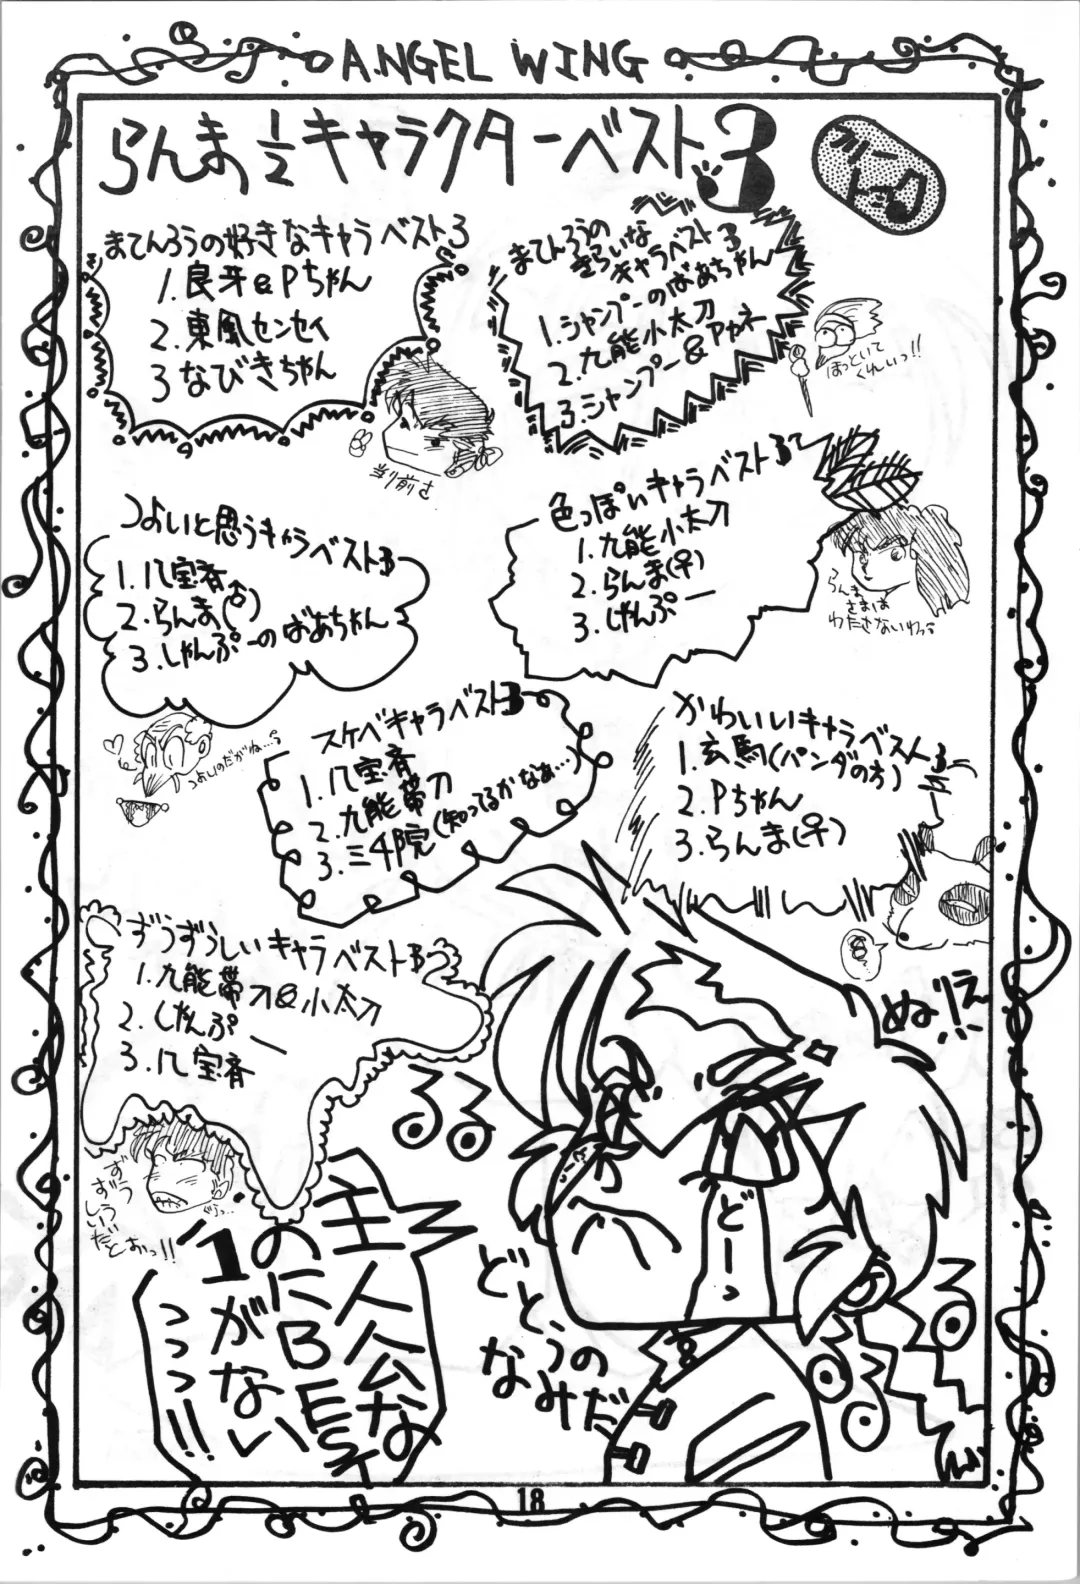 ANGEL WING
らんま½キャラクターベスト3
フリー
トーク
まてんろうの好きなキャラベスト3
1.良牙&Pちゃん
2.東風センセイ
3 なびきちゃん
当り前さ
まてんろうの
きらいな
キャラベスト3
1.シャンプーのばあちゃん
2.九能小太刀
3.シャンプー&アカネ
ほっといて
くれいっ!!
つよいと思うキャラベスト3
1.八宝斉
2.らんま(♂)
3.しゃんぷーのばあちゃん
つよいのだがね…
色っぽいキャラベスト3
1.九能小太刀
2.らんま(♀)
3.しゃんぷー
らんま
さまは
わたさないわっ
スケベキャラベスト3
1.八宝斉
2.九能帯刀
3.三千院(知ってるかなぁ…)
かわいいキャラベスト3
1.玄馬(パンダの方)
2.Pちゃん
3.らんま(♀)
ずうずうしいキャラベスト3
1.九能帯刀&小太刀
2.しゃんぷー
3.八宝斉
ずう
ずう
しい
だとおっ!!
ぬりえ!!
るる
主人公な
のにBEST
1がない
っっっ!!
どーっ
どとうの
なみだ
るるる
18